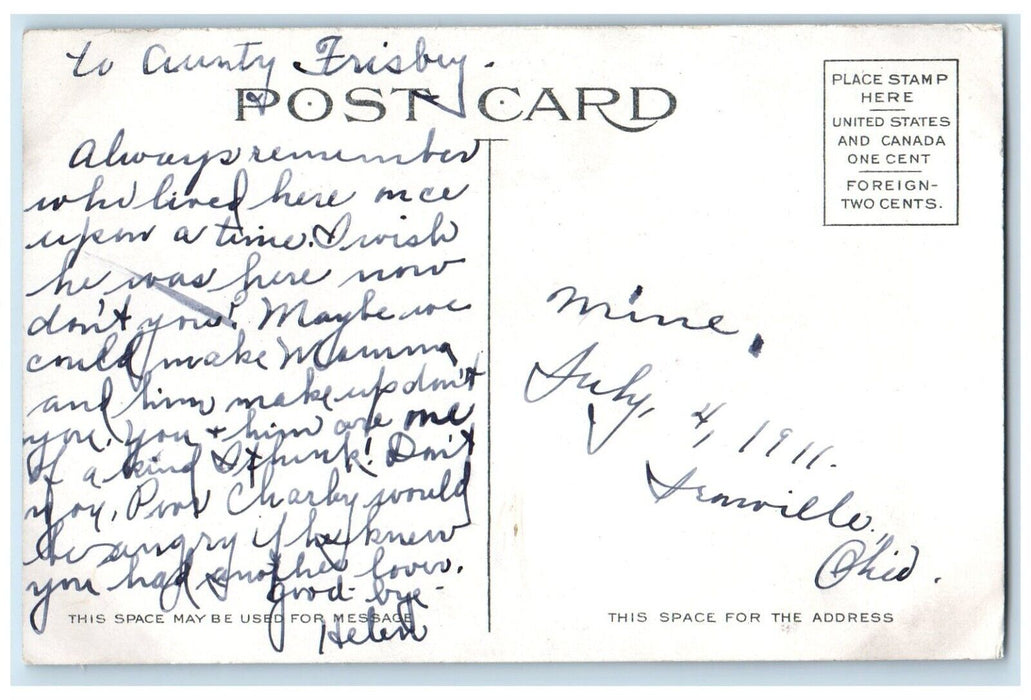 to Aunty Frisby.
POST CARD
Always remember
who lived here once
upon a time. I wish
he was here now
don't you! Maybe we
could make Momma
and him make up don't
you. You + him are one
of a kind I think! Don't
you, Poor Charley would
be angry if he knew
you had another lover.
good-bye-
Helen
THIS SPACE MAY BE USED FOR MESSAGE
PLACE STAMP
HERE
UNITED STATES
AND CANADA
ONE CENT
FOREIGN-
TWO CENTS.
Mine.
July, 4, 1911.
Ohio.
THIS SPACE FOR THE ADDRESS